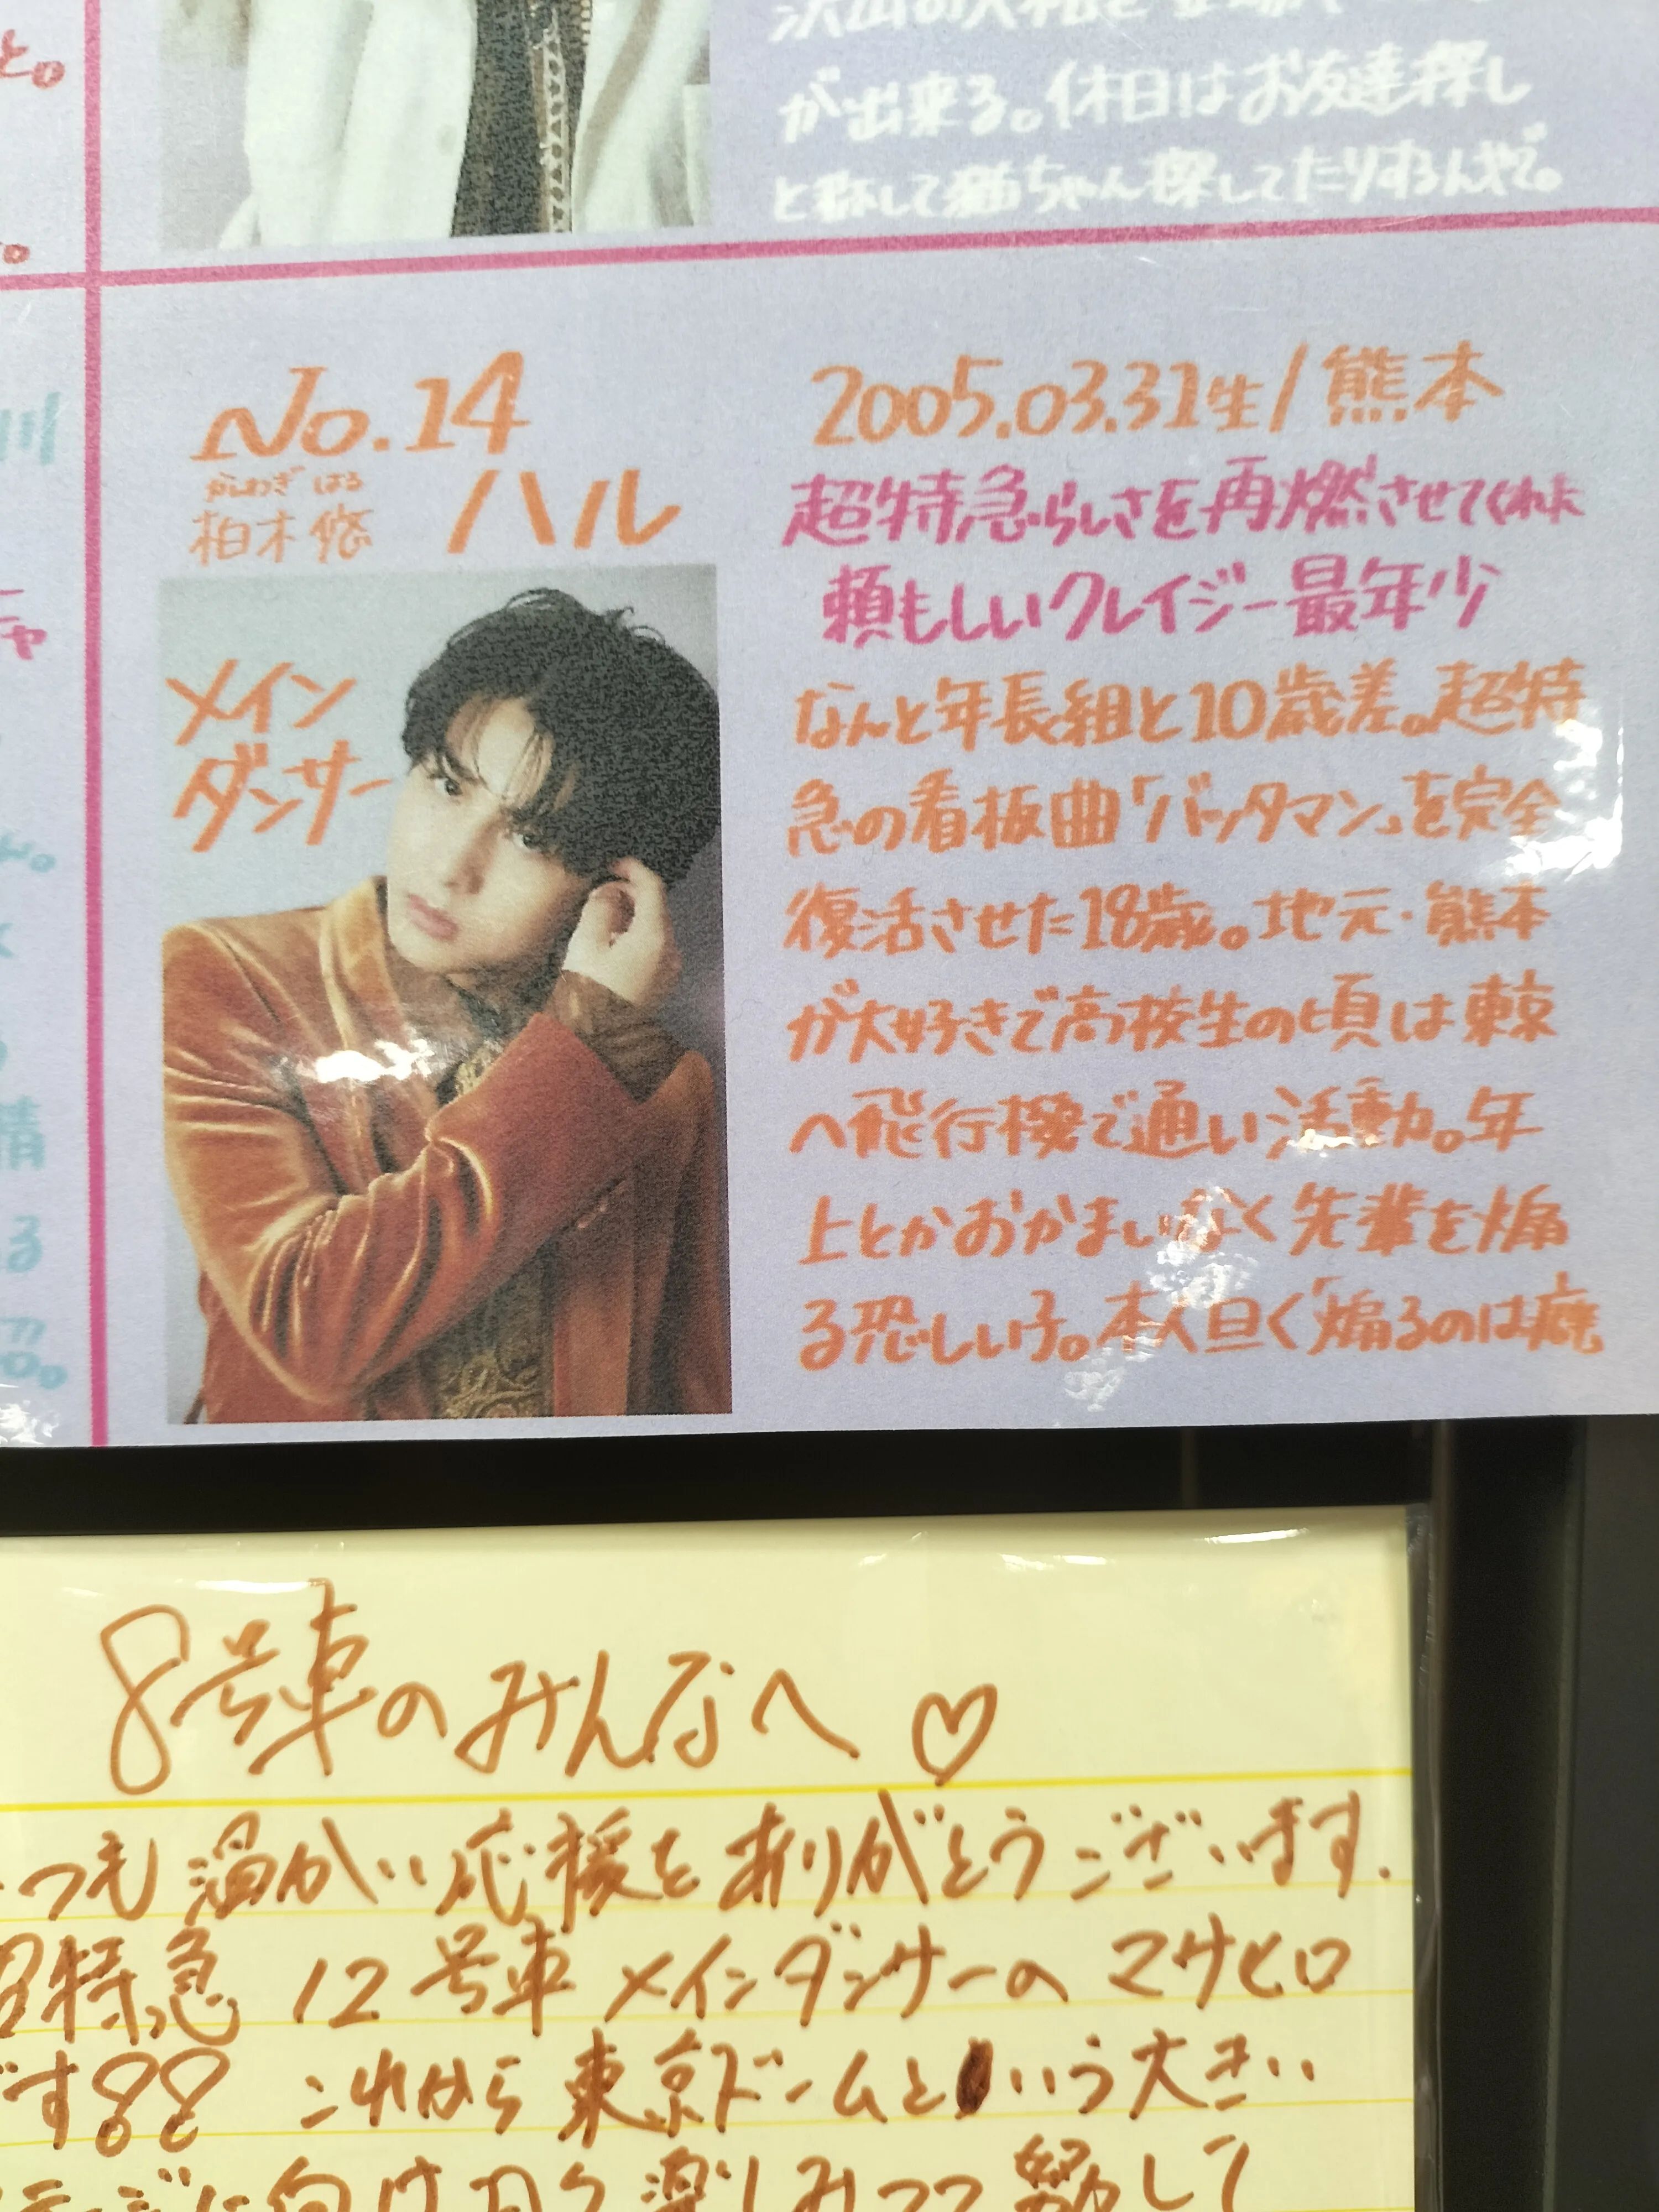 と。
が出来る。休日はお友達探し
と称して猫ちゃん探してたりするんやで。
川
No.14
かしわぎ はる
柏木 悠 ハル
メイン
ダンサー
2005.03.31生/熊本
超特急らしさを再燃させてくれよ
頼もしいクレイジー最年少
なんと年長組と10歳差。超特
急の看板曲「バッタマン」を完全
復活させた18歳。地元・熊本
が大好きで高校生の頃は東京
へ飛行機で通い活動。年
上とかおかまいなく先輩を煽
る恐しい子。本人曰く「煽るのは癖
8号車のみんなへ♡
つも温かい応援をありがとうございます.
超特急 12号車 メインダンサーの マサヒロ
です!! これから東京ドームという大きい
に向けて 楽しみつつ 努力して